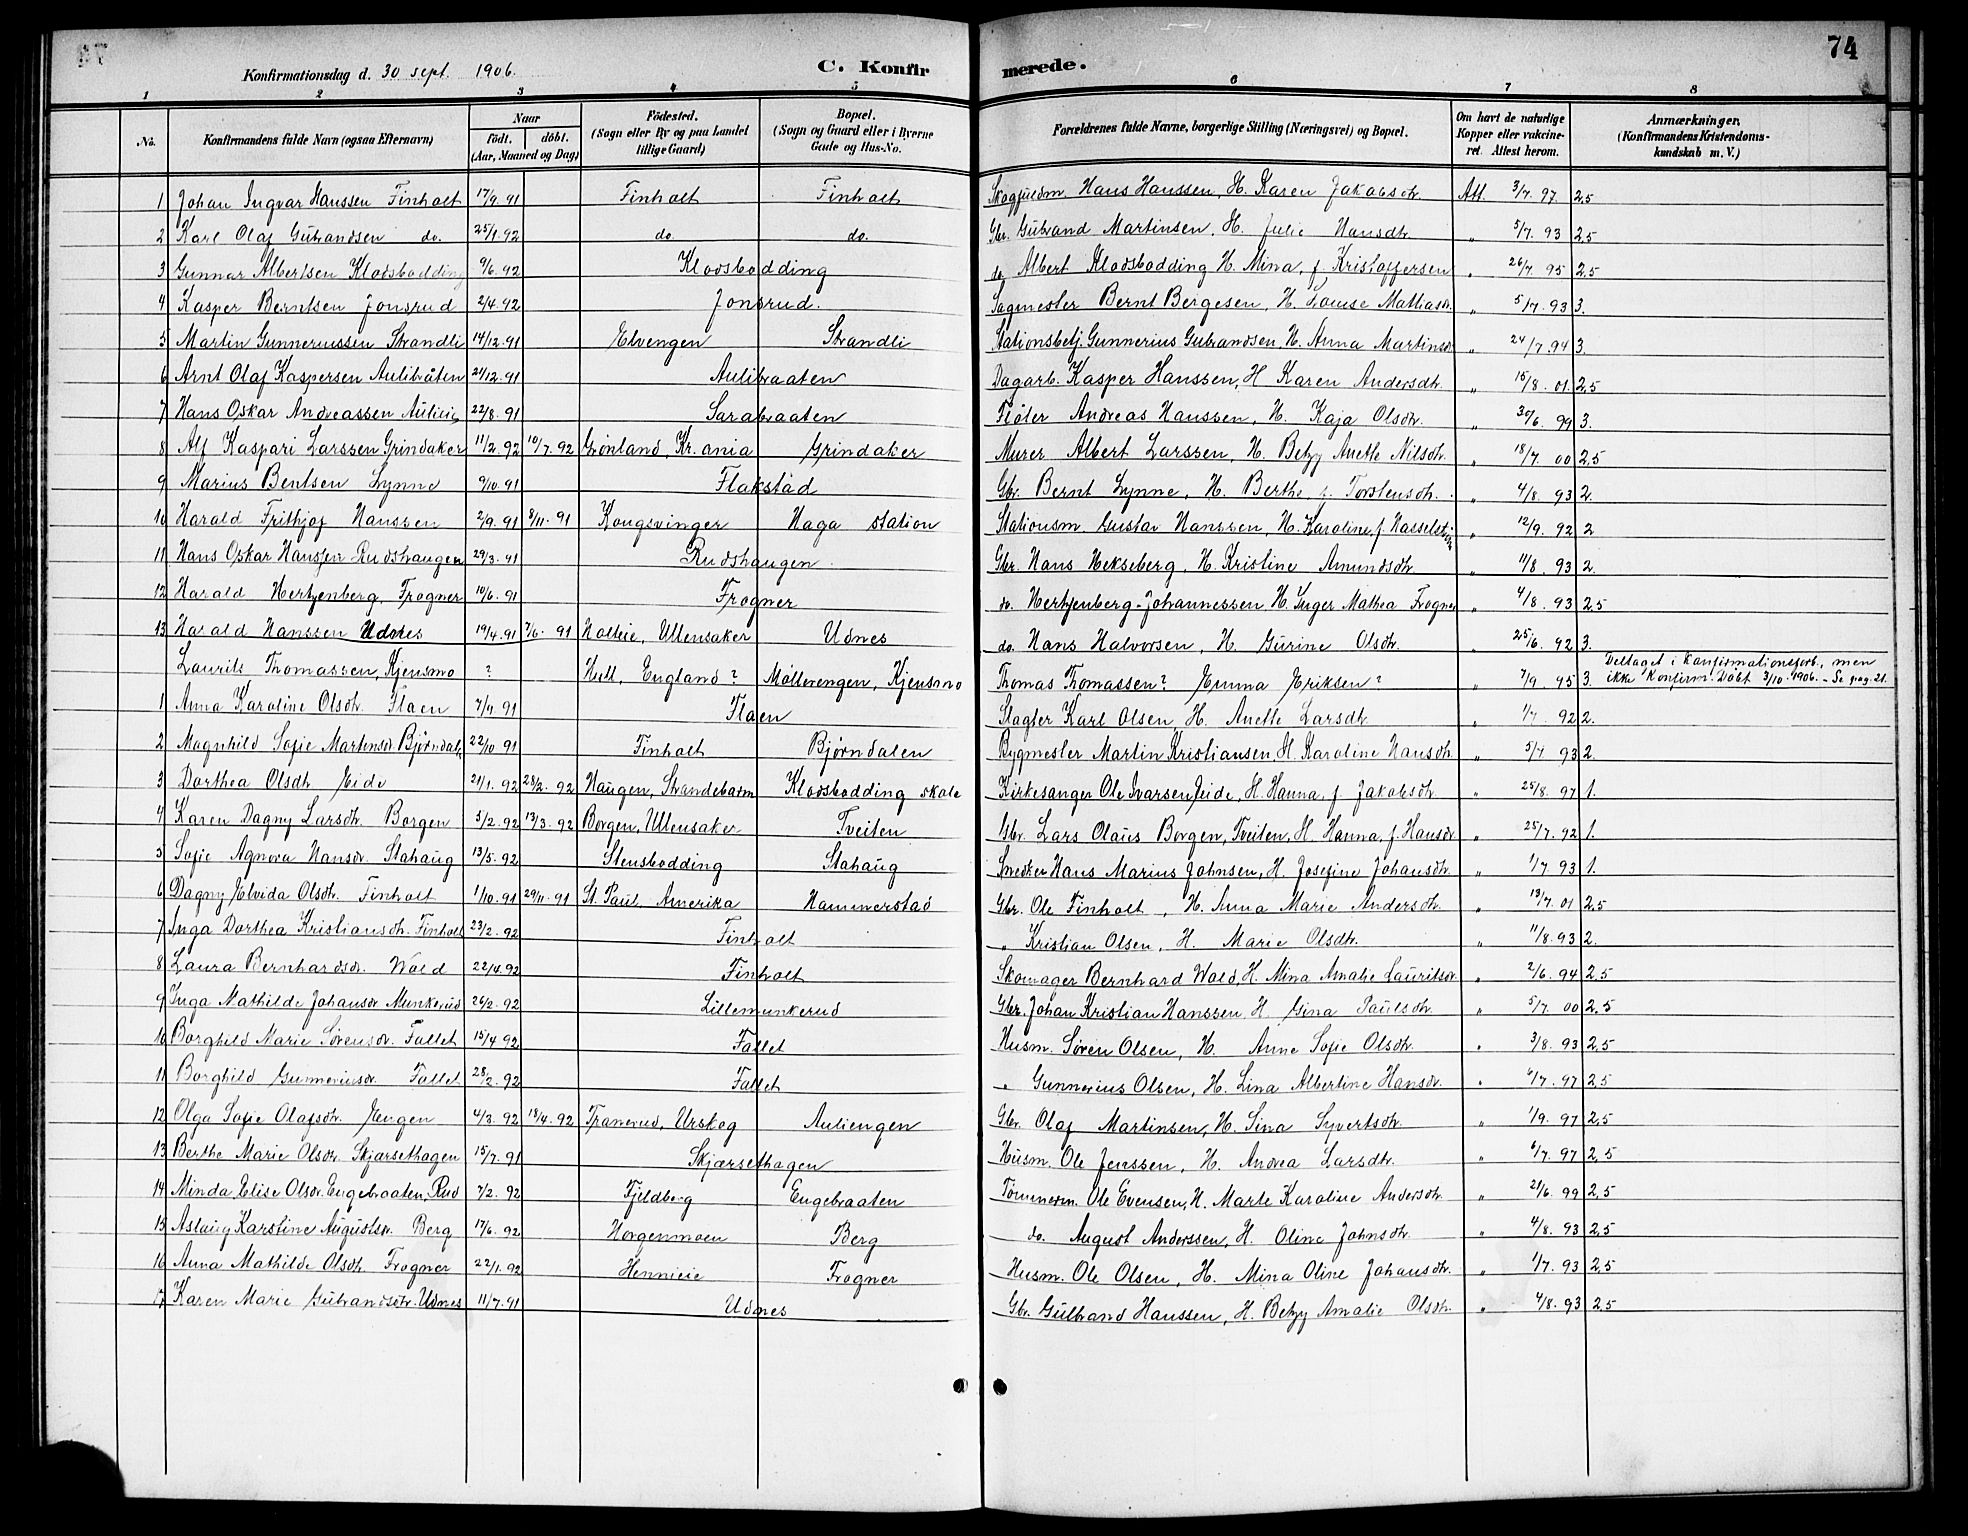 74
Konfirmationsdag d. 30 sept. 1906. C. Konfirmerede.
1 2 3 4 5 6 7 8
No. Konfirmandens fulde Navn (ogsaa Efternavn) Naar født. døbt. (Aar, Maaned og Dag) Födested. (Sogn eller By og paa Landet tillige Gaard) Bopæl. (Sogn og Gaard eller i Byerne Gade og Hus-No. Forældrenes fulde Navne, borgerlige Stilling (Næringsvei) og Bopæl. Om havt de naturlige Kopper eller vakcineret. Attest herom. Anmærkninger, (Konfirmandens Kristendomskundskab m. V.)
1 Johan Ingvar Hanssen Finholt 17/9.91 Finholt Finholt Hans Hanssen, H. Karen Jakobsdtr. Att. 3/7.97. 2,5
2 Karl Olaf Gutrandsen do. 25/1.92 do. do. Gbr. Gutrand Martinsen, H. Julie Hansdtr. " 5/7.93 2,5
3 Gunnar Albertsen Klodsbodding 9/6.92 Klodsbodding do. Albert Klodsbodding H. Mina, f. Kristoffersen " 26/7.95 2,5
4 Kasper Berntsen Jonsrud 2/4.92 Jonsrud. Sagmester Bernt Bergesen, H. Louise Mathiasdr. " 5/7.93 3.
5 Martin Gunneriussen Strandli 14/12.91 Elvengen Strandli Stationsbetj. Gunnerius Gutrandsen, H. Anna Martinsdr " 24/7.94 3.
6 Arnt Olaf Kaspersen Aulibråten 21/12.91 Aulibraaten Dagarb. Kasper Hanssen, H Karen Andersdtr. " 15/8.01. 2,5
7 Hans Oskar Andreassen Aulieie 22/8.91 Sarabraaten Fløter Andreas Hanssen, H. Kaja Olsdtr. " 30/6.99 3.
8 Alf Kaspari Larssen Grindaker 11/2.92 10/7.92 Grønland, Kr.ania Grindaker Murer Albert Larssen, H. Betzy Anette Nilsdtr. " 18/7.00 2,5
9 Marius Bentsen Lynne 9/10.91 Flakstad Gbr. Bernt Lynne, H. Berthe, f. Torstensdtr. " 4/8.93 2.
10 Harald Frithjof Hanssen 2/9.91 8/11.91 Kongsvinger Haga station Stationsm. Gustav Hanssen, H. Karoline, f. " 12/9.92 2
11 Hans Oskar Hanssen Rudshaugen 29/3.91 Rudshaugen. Gbr. Hans Hekseberg, H. Kristine Amundsdtr. " 11/8.93 2.
12 Harald Hertzenberg Frogner 10/6.91 Frogner do. Hertzenberg Johannessen H. Inger Mathea Frogner " 4/8.93 2,5
13 Harald Hanssen Udnes 19/4.91 7/6.91 Holteie, Ullensaker Udnes do. Hans Halvorsen, H. Gurine Olsdtr. " 25/6.92 3.
Laurits Thomassen, Kjensmo ? Hull, England? Møllerengen, Kjensmo Thomas Thomassen? Emma Eriksen? " 7/9.95 3. Deltaget i konfirmationsforb., men
ikke konfirm. Døbt 3/10.1906. - Se pag. 21.
1 Anna Karoline Olsdtr. Flaen 7/4.91 Flaen Slagter Karl Olsen, H. Anette Larsdtr. " 1/7.92 2.
2 Magnhild Sofie Martinsdr. Bjørndalen 22/10.91 Finholt Bjørndalen Bygmester Martin Kristiansen, H. Karoline Hansdtr. " 5/7 93 2.
3 Dorthea Olsdtr. Eide 21/1.92 28/2.92 Haugen, Strandebarm Klodsbodding skole Kirkesanger Ole Ivarsen Eide, H. Hanna, f. Jakobsdtr. " 25/8.97 1.
4 Karen Dagny Larsdtr. Borgen 5/2.92 13/3.92 Borgen, Ullensaker Tveiten Gbr. Lars Olaus Borgen, Tveiten, H. Hanna, f. Hansdr. " 25/7.92 1.
5 Sofie Agnora Hansdr. Stahaug 13/5.92 Stensbodding Stahaug Snedker Hans Marius Johnsen, H. Josefine Johansdtr. " 1/7.93 1.
6 Dagny Elvida Olsdtr. Finholt 1/10.91 29/11.91 St. Paul, Amerika Hammerstad Gbr. Ole Finholt, H. Anna Marie Andersdtr. " 13/7.01 2,5
7 Inga Dorthea Kristiansdtr. Finholt 23/2.92 Finholt " Kristian Olsen, H. Marie Olsdtr. " 11/8.93 2.
8 Laura Bernhardsdr. Wold 22/4.92 Finholt Skomager Bernhard Wold, H. Mina Amalie Lauritsdr. " 2/6.94 2,5
9 Inga Mathilde Johansdr. Munkerud 26/2.92 Lillemunkerud Gbr. Johan Kristian Hanssen, H. Gina Paulsdtr. " 5/7.00 2,5
10 Borghild Marie Sørensdr. Fallet 15/4.92 Fallet Husm. Søren Olsen, H. Anne Sofie Olsdtr. " 3/8.93 2,5
11 Borghild Gunneriusdr. Fallet 28/2.92 Fallet " Gunnerius Olsen, H. Lina Albertine Hansdr. " 6/7.97 2,5
12 Olga Sofie Olafsdtr. Engen 4/3.92 18/4.92 Tranerud, Urskog Auliengen Gbr. Olaf Martinsen, H. Sina Syvertsdtr. " 1/9.97 2,5
13 Berthe Marie Olsdr. Skjærsethagen 15/7.91 Skjærsethagen Husm. Ole Jenssen, H. Andrea Larsdtr. " 6/7.97 2,5
14 Minda Elise Olsdr. Engebraaten, Rud 7/2.92 Fjeldberg Engebraaten Tømmerm. Ole Evensen, H. Marte Karoline Andersdtr. " 21/6.99 2,5
15 Aslaug Karstine Augustsdr. Berg 17/6.92 Horgenmoen Berg do. August Anderssen, H. Oline Johnsdtr. " 4/8.93 2,5
16 Anna Mathilde Olsdtr. Frogner 22/1.92 Hennieie Frogner Husm. Ole Olsen, H. Mina Oline Johansdtr. " 1/7.93 2,5
17 Karen Marie Gutrandsdtr. Udnes 11/7.91 Udnes Gbr. Gulbrand Hanssen, H. Betzy Amalie Olsdtr. " 4/8.93 2,5